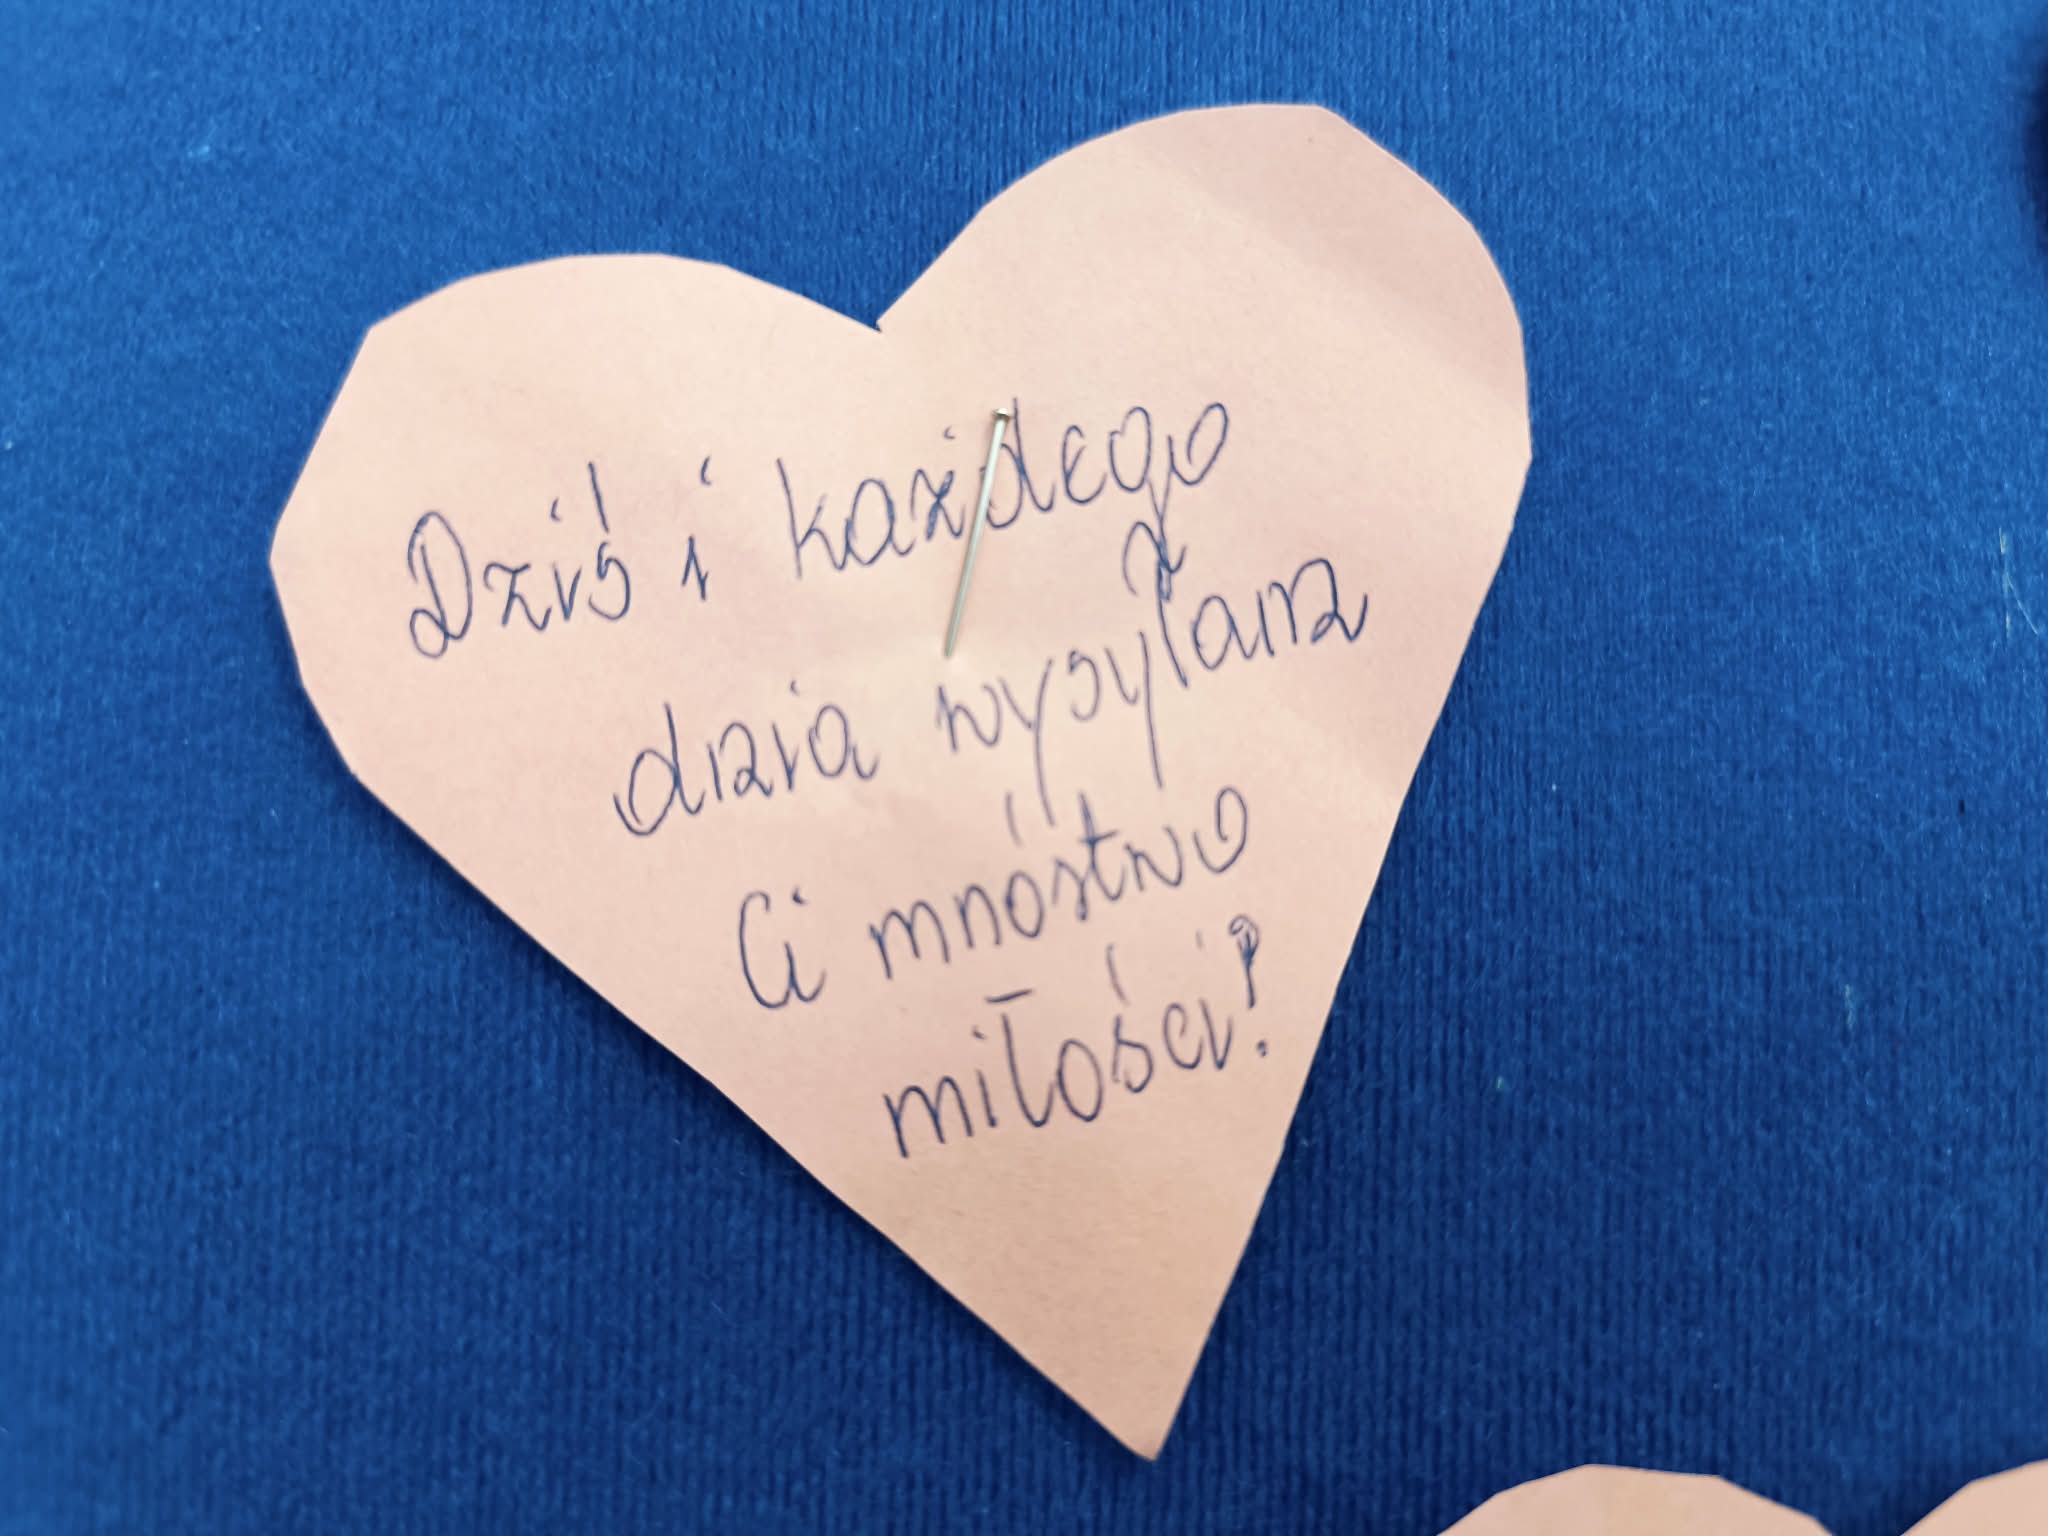 Dziś i każdego
dnia wysyłam
Ci mnóstwo
miłości!